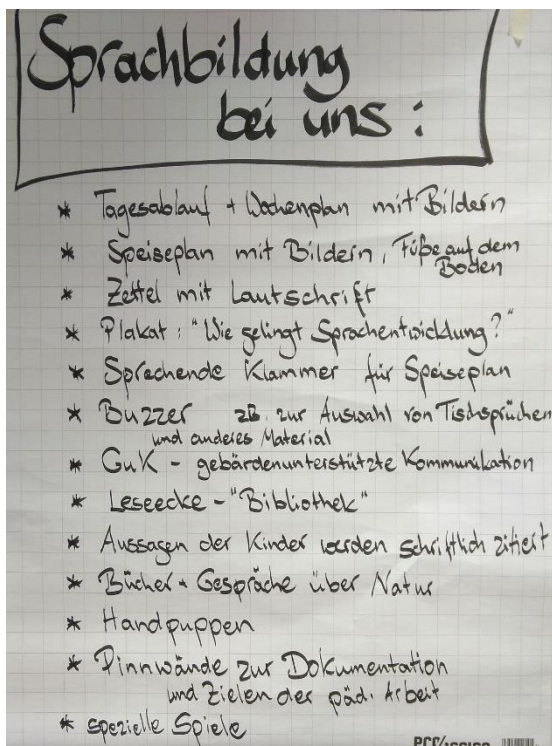 Sprachbildung
bei uns :
* Tagesablauf + Wochenplan mit Bildern
* Speiseplan mit Bildern, Füße auf dem
Boden
* Zettel mit Lautschrift
* Plakat : "Wie gelingt Sprachentwicklung?"
* Sprechende Klammer für Speiseplan
* Buzzer zB. zur Auswahl von Tischsprüchen
und anderes Material
* GuK - gebärdenunterstützte Kommunikation
* Leseecke - "Bibliothek"
* Aussagen der Kinder werden schriftlich zitiert
* Bücher + Gespräche über Natur
* Handpuppen
* Pinnwände zur Dokumentation
und Zielen der päd. Arbeit
* spezielle Spiele